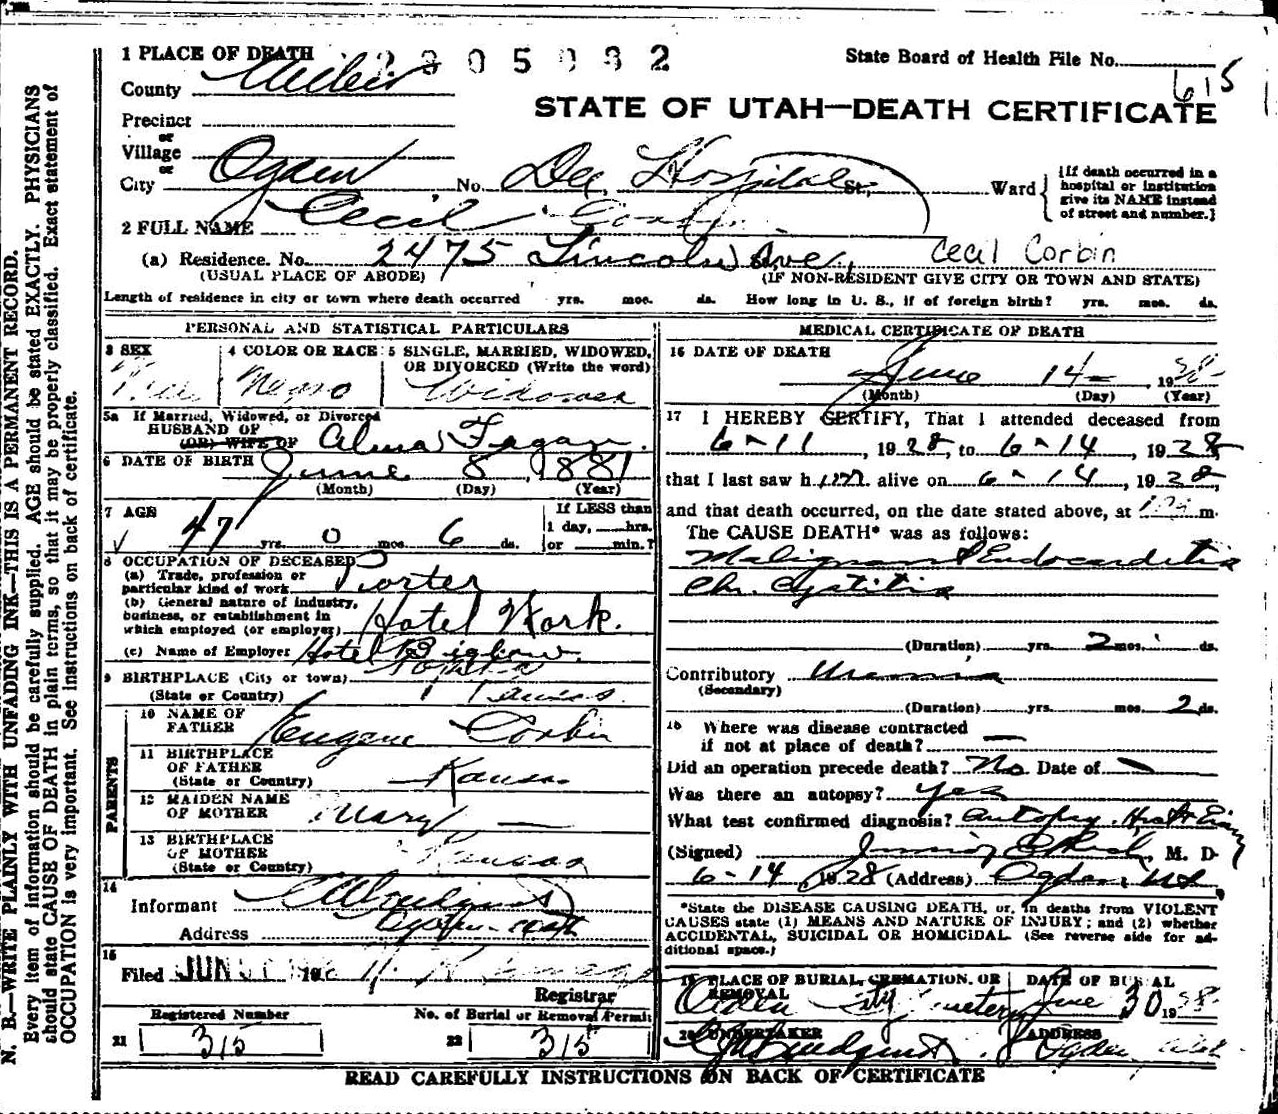 1 PLACE OF DEATH 2805032
State Board of Health File No.
615
County Weber
STATE OF UTAH—DEATH CERTIFICATE
Precinct
or
Village
or
City Ogden No. Dee Hospital St., Ward {If death occurred in a hospital or institution give its NAME instead of street and number.}
2 FULL NAME Cecil Corbin
(a) Residence. No. 2475 Lincoln Ave, Cecil Corbin
(USUAL PLACE OF ABODE) (IF NON-RESIDENT GIVE CITY OR TOWN AND STATE)
Length of residence in city or town where death occurred yrs. mos. ds. How long in U. S., if of foreign birth? yrs. mos. ds.
PERSONAL AND STATISTICAL PARTICULARS
3 SEX
4 COLOR OR RACE Negro
5 SINGLE, MARRIED, WIDOWED, OR DIVORCED (Write the word)
Widower
5a If Married, Widowed, or Divorced
HUSBAND OF
(OR) WIFE OF Alma Fagan
6 DATE OF BIRTH June 8, 1881
(Month) (Day) (Year)
7 AGE
47 yrs. 0 mos. 6 ds.
If LESS than
1 day, hrs.
or min.?
8 OCCUPATION OF DECEASED
(a) Trade, profession or
particular kind of work Porter
(b) General nature of industry,
business, or establishment in
which employed (or employer) Hotel Work.
(c) Name of Employer Hotel Bigelow
9 BIRTHPLACE (City or town) Topeka
(State or Country) Kansas
PARENTS
10 NAME OF
FATHER Eugene Corbin
11 BIRTHPLACE
OF FATHER
(State or Country) Kansas
12 MAIDEN NAME
OF MOTHER Mary —
13 BIRTHPLACE
OF MOTHER
(State or Country) Kansas
14
Informant
Address Ogden Utah
15
Filed JUN 19
Registrar
Registered Number
21 315
No. of Burial or Removal Permit
22 315
MEDICAL CERTIFICATE OF DEATH
16 DATE OF DEATH
June 14 — , 1928
(Month) (Day) (Year)
17 I HEREBY CERTIFY, That I attended deceased from
6-11, 1928, to 6-14, 1928,
that I last saw him alive on 6-14, 1928,
and that death occurred, on the date stated above, at m.
The CAUSE DEATH* was as follows:
Malignant Endocarditis
Chr. Cystitis
(Duration) yrs. 2 mos. ds.
Contributory Uraemia
(Secondary)
(Duration) yrs. mos. 2 ds.
18 Where was disease contracted
if not at place of death? —
Did an operation precede death? No. Date of —
Was there an autopsy? yes
What test confirmed diagnosis? Autopsy.
(Signed) Junior E Rich, M. D.
6-14, 1928 (Address) Ogden, Ut.
*State the DISEASE CAUSING DEATH, or, in deaths from VIOLENT
CAUSES state (1) MEANS AND NATURE OF INJURY; and (2) whether
ACCIDENTAL, SUICIDAL OR HOMICIDAL. (See reverse side for additional space.)
19 PLACE OF BURIAL, CREMATION, OR REMOVAL DATE OF BURIAL
Ogden City Cemetery June 30 1928
20 UNDERTAKER ADDRESS
Lindquist Ogden, Utah
READ CAREFULLY INSTRUCTIONS ON BACK OF CERTIFICATE
N. B.—WRITE PLAINLY WITH UNFADING INK—THIS IS A PERMANENT RECORD.
Every item of information should be carefully supplied. AGE should be stated EXACTLY. PHYSICIANS
should state CAUSE OF DEATH in plain terms, so that it may be properly classified. Exact statement of
OCCUPATION is very important. See instructions on back of certificate.